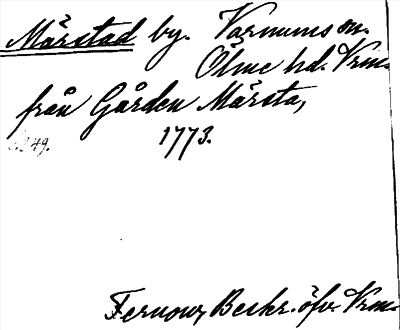 Mårstad by. Varnums sn.
Ölme hd. Vrm.
från Gården Mårsta,
s. 249. 1773.
Fernow, Beskr. öfv. Vrm.